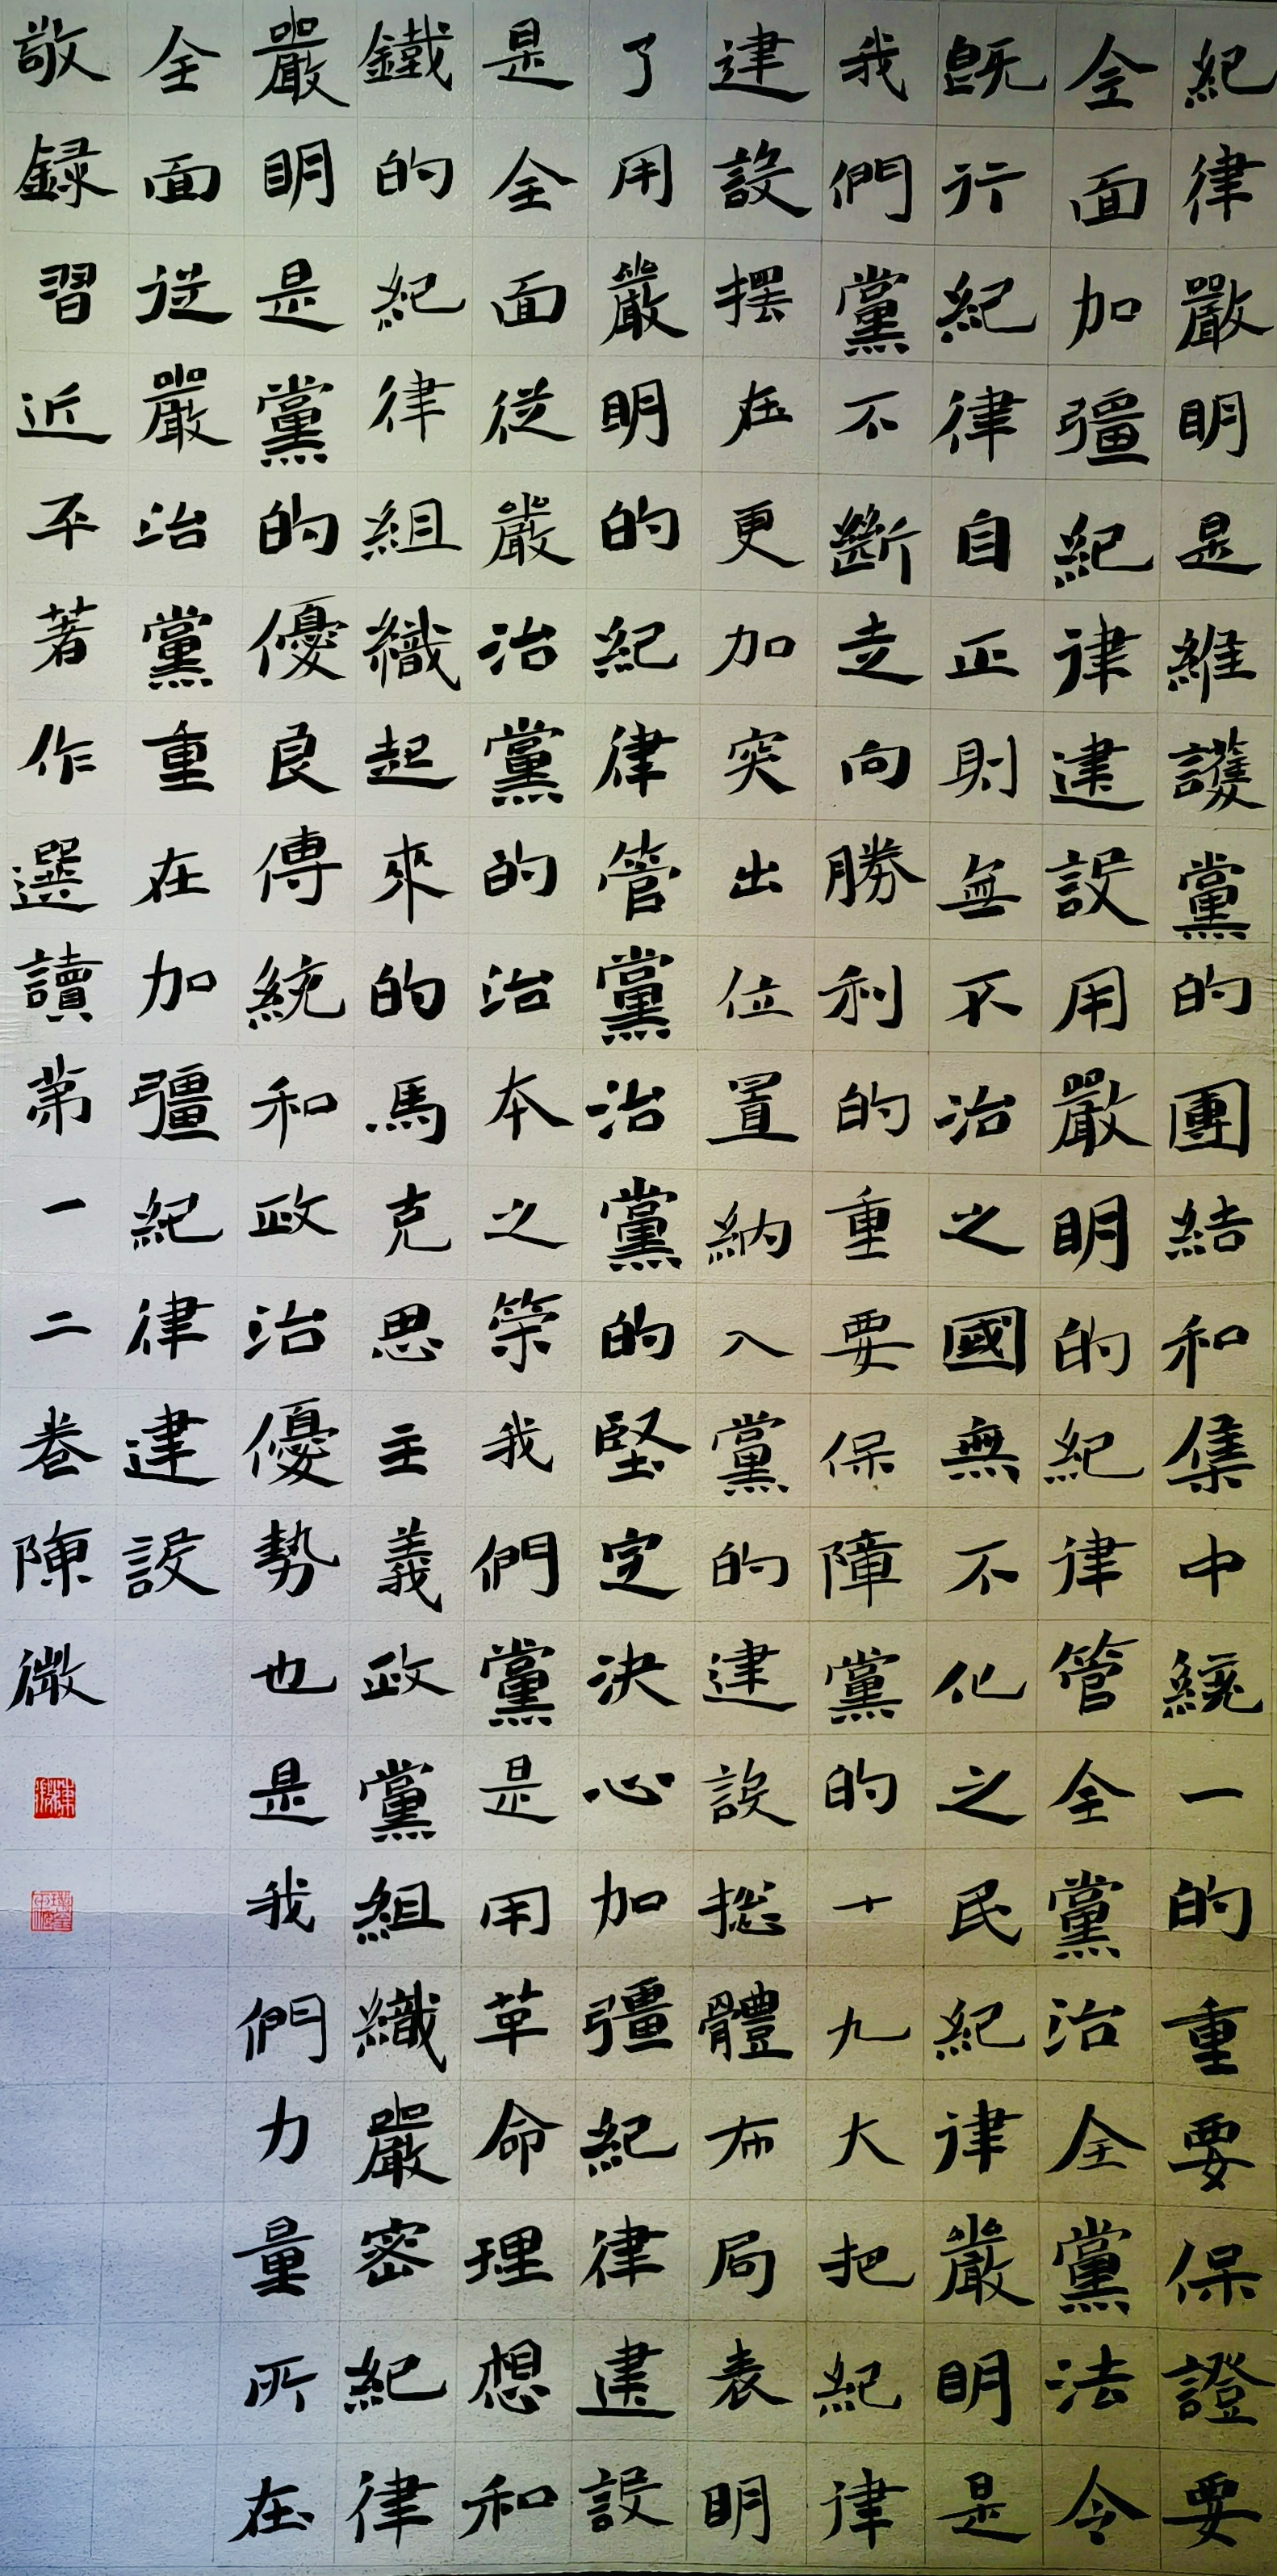 紀律嚴明是維護黨的團結和集中統一的重要保證要
全面加彊紀律建設用嚴明的紀律管全黨治全黨法令
既行紀律自正則無不治之國無不化之民紀律嚴明是
我們黨不斷走向勝利的重要保障黨的十九大把紀律
建設擺在更加突出位置納入黨的建設總體布局表明
了用嚴明的紀律管黨治黨的堅定決心加彊紀律建設
是全面從嚴治黨的治本之策我們黨是用革命理想和
鐵的紀律組織起來的馬克思主義政黨組織嚴密紀律
嚴明是黨的優良傳統和政治優勢也是我們力量所在
全面從嚴治黨重在加彊紀律建設
敬録習近平著作選讀第一二卷陳微